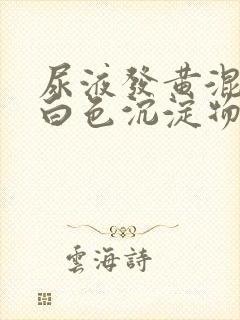 尿液發黄混
白色沉淀物
雲海詩